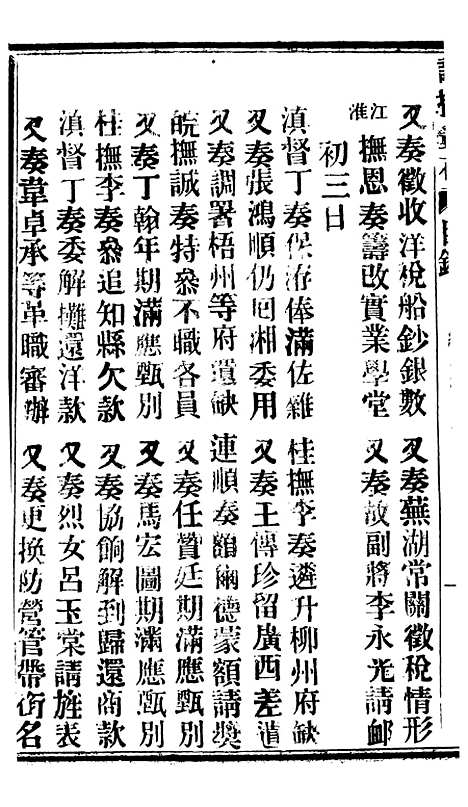 又奏徵收洋稅船鈔銀數　又奏蕪湖常關徵稅情形
江淮撫恩奏籌改實業學堂　又奏故副將李永光請卹
初三日
滇督丁奏保洊俸滿佐雜　桂撫李奏遴升柳州府缺
又奏張鴻順仍囘湘委用　又奏王傳珍留廣西差遣
又奏調署梧州等府遺缺　連順奏額爾德蒙額請獎
皖撫誠奏特叅不職各員　又奏任贊廷期滿應甄別
又奏丁翰年期滿應甄別　又奏馬宏圖期滿應甄別
桂撫李奏叅追知縣欠款　又奏協餉解到歸還商款
滇督丁奏委解攤還洋款　又奏烈女呂玉棠請旌表
又奏韋卓承等革職審辦　又奏更換防營管帶銜名